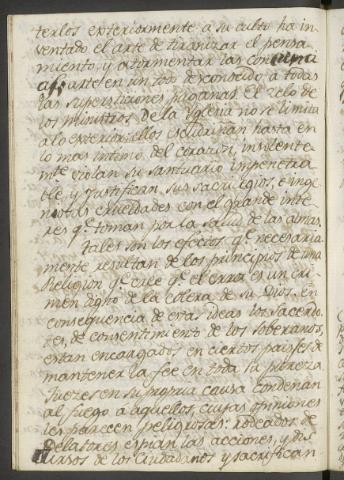 terlos exteriormente a su culto ha in
ventado el arte de tiranizar el pensa
miento, y atormentar las concien
cias: arte en un todo desconocido à todas
las supersticiones paganas. El zelo de
los ministros de la Yglesia no se limita
a lo exterior: ellos escudriñan hasta en
lo mas intimo del corazon, insolente
mte violan su santuario impenetra
ble, y justifican sus sacrilegios, è inge
niosas crueldades con el grande inte
res qe. toman por la salud de las almas.
Tales son los efectos qe. necesaria
mente resultan de los principios de una
Religion qe. cree qe. el error es un cri
men digno de la colera de su Dios. en
consequencia de esas ideas los sacerdo
tes, de consentimiento de los soberanos,
estan encargados en ciertos paises de
mantener la feé en toda su pureza
Jueces en su propria causa condenan
al fuego à aquellos, cuyas opiniones
les parecen peligrosas: rodeados de
Delatores espian las acciones, y dis
cursos de los ciudadanos y sacrifican